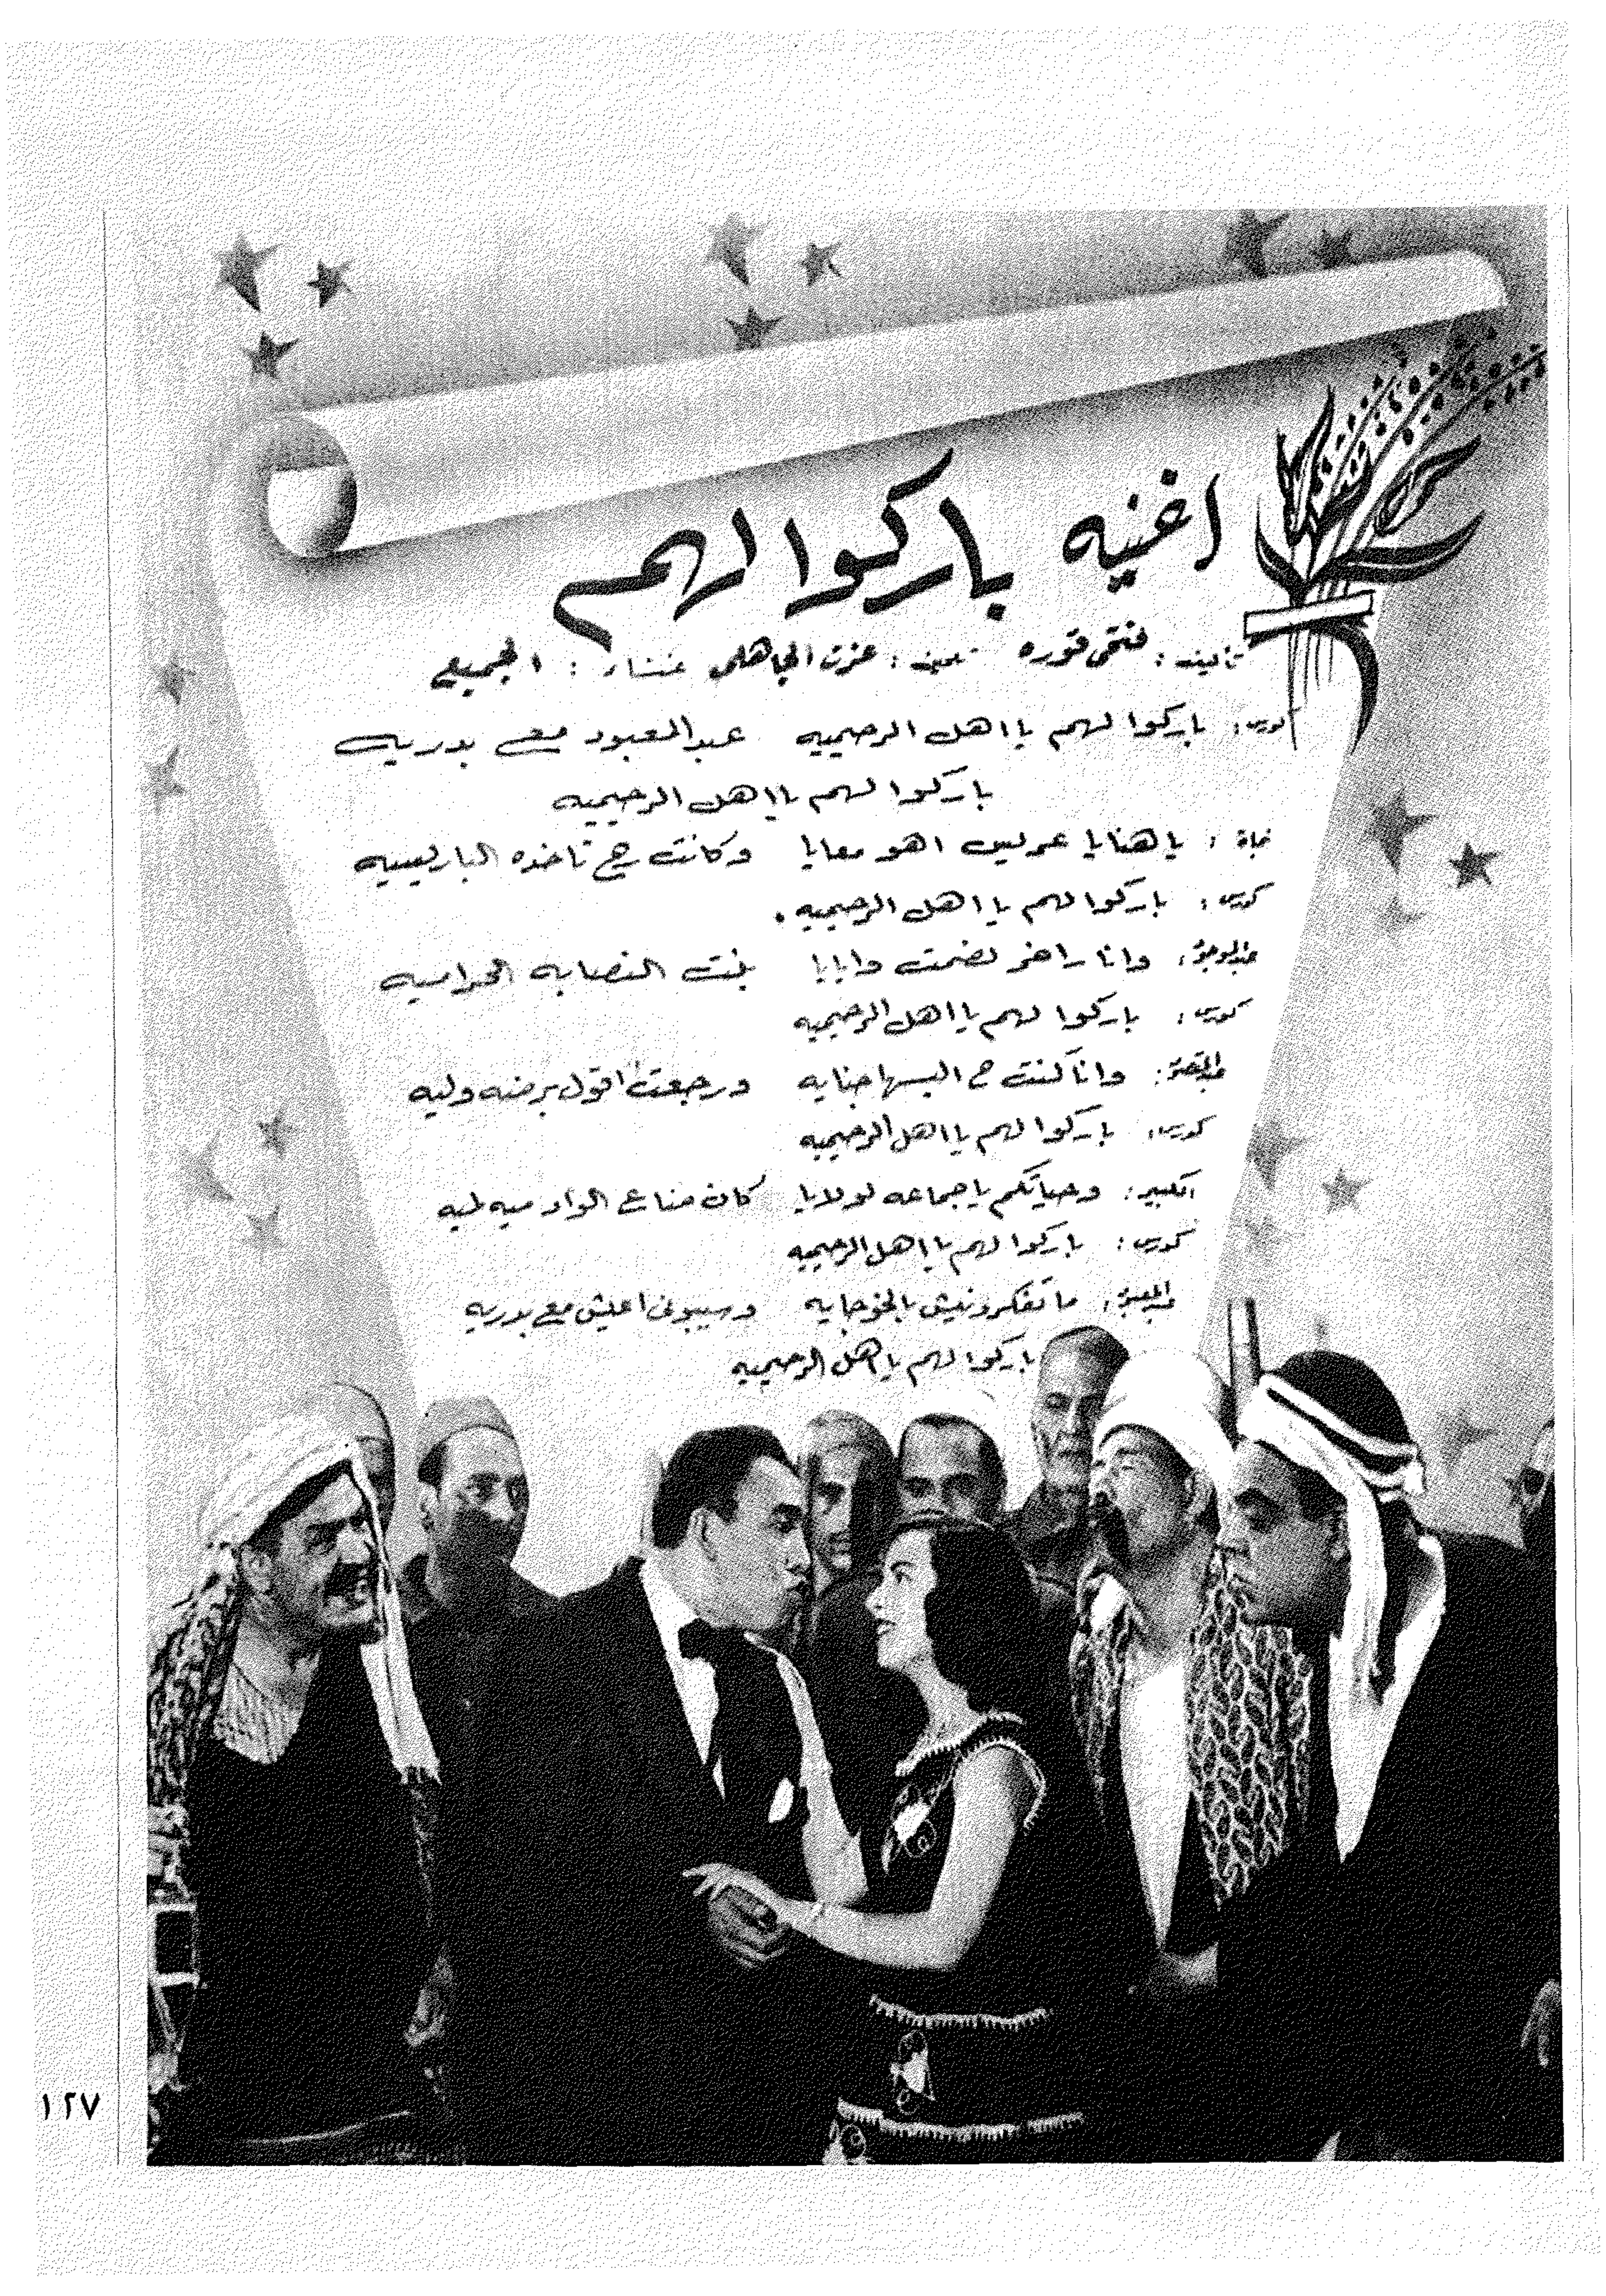 اغنيه باركوا لهم
تأليف: فتحى قوره تلحين: عزت الجاهلى غناء: الجميع
كورس: باركوا لهم يا اهل الرحيميه عبد المعبود مع بدريه
باركوا لهم يا اهل الرحيميه
نجاة: يا هنايا عريس اهو معايا وكانت رح تاخده الباريسيه
كورس: باركوا لهم يا اهل الرحيميه.
وانا راخر لضمت وايايا بنت النصابه الحراميه
كورس: باركوا لهم يا اهل الرحيميه
وانا كنت ح البسها جنايه ورجعت اقول برضه وليه
كورس: باركوا لهم يا اهل الرحيميه
الكبير: وحياتكم يا جماعه لولايا كان ضاع الواد ميه لميه
كورس: باركوا لهم يا اهل الرحيميه
ما تفكرونيش بالخوجايه وسيبونى اعيش مع بدريه
باركوا لهم يا اهل الرحيميه
١٢٧